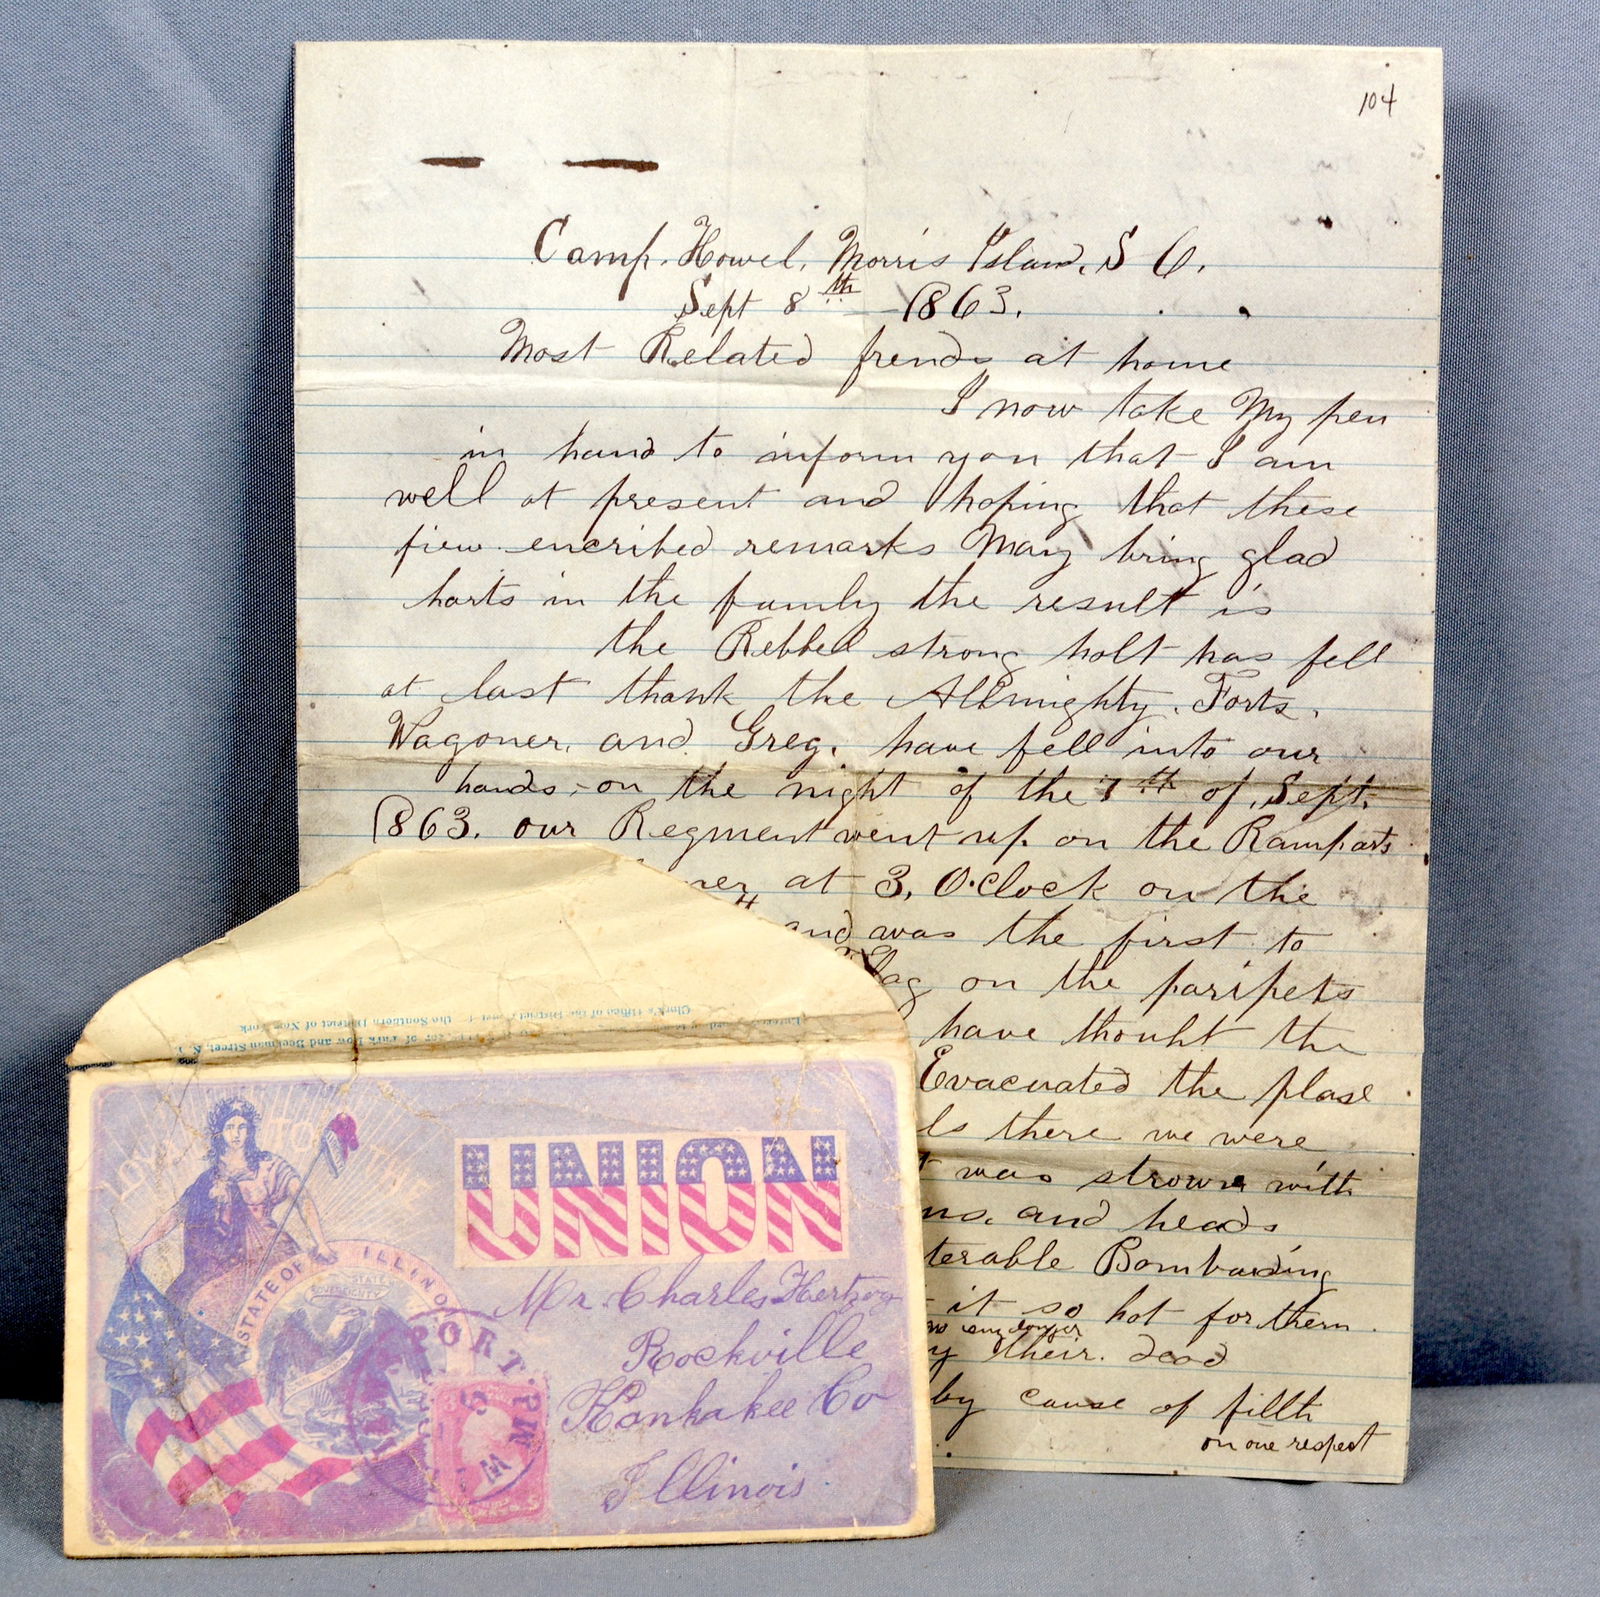 104
Camp. Howel, Morris Island, S C.
Sept 8th 1863.
Most Related frends at home
I now take My pen
in hand to inform you that I am
well at present and hoping that these
fiew encribed remarks May bring glad
harts in the family the result is
the Rebbel strong holt has fell
at last thank the Allmighty. Forts.
Wagoner. and Greg. have fell into our
hands - on the night of the 7th of Sept.
1863. our Regment went up on the Ramparts
ner at 3, O.clock on the
and was the first to
Flag on the paripets
have thouht the
Evacuated the plase
ls there we were
was strown with
ns. and heads
terable Bombarding
it so hot for them
no enj danger
y their dead
by cause of fillth
on one respect
Clerk's Office of the District Court of the Southern District of New York
LOYAL TO THE
UNION
STATE OF ILLINO
STATE
SOVEREIGNTY
PORT
Mr. Charles Hertzog
Rockville
Kankakee Co
Illinois